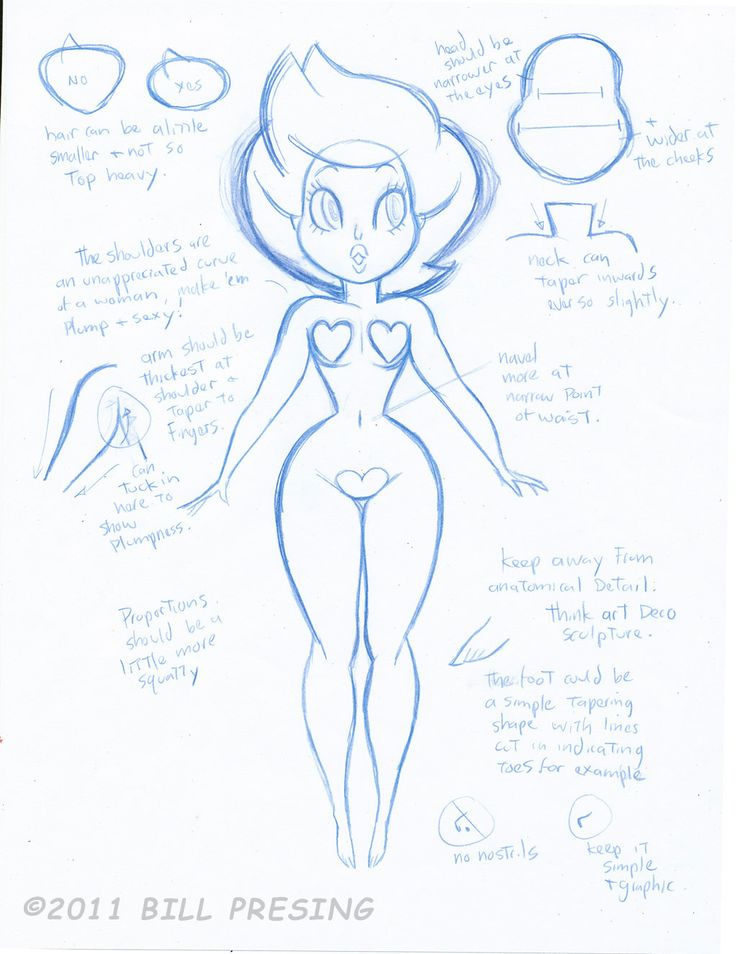 NO
YES
hair can be a little
smaller + not so
Top heavy.
head
should be
narrower at
the eyes
+
wider at
the cheeks
neck can
taper inwards
ever so slightly.
The shoulders are
an unappreciated curve
of a woman, make 'em
Plump + sexy!
arm should be
thickest at
shoulder +
Taper to
Fingers.
can
tuck in
here to
show
Plumpness.
navel
more at
narrow Point
of waist.
Proportions
should be a
little more
squatty
keep away From
anatomical Detail.
think art Deco
sculpture.
the foot could be
a simple tapering
shape with lines
cut in indicating
toes for example
no nostrils
keep it
simple
+ graphic.
©2011 BILL PRESING